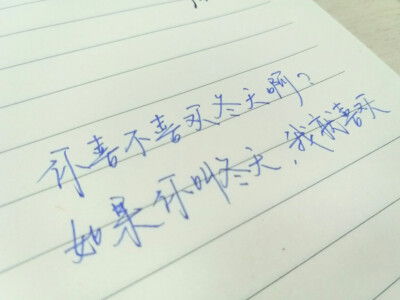 你喜不喜欢冬天啊？
如果你叫冬天，我就喜欢